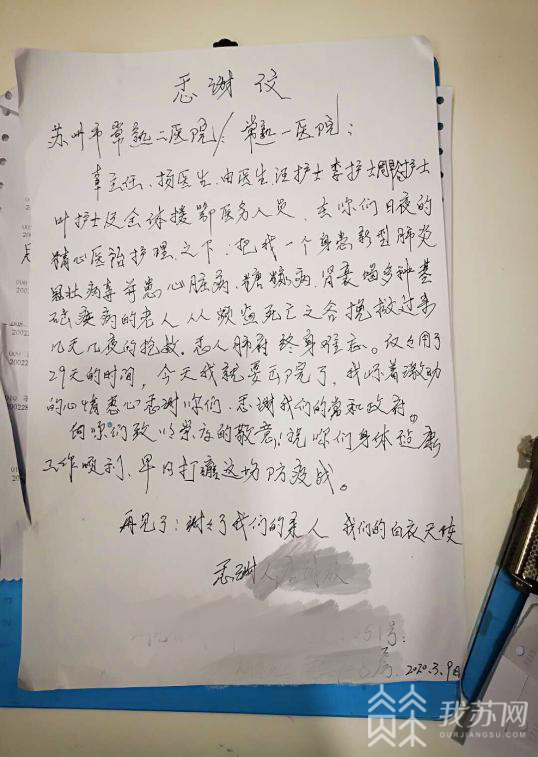 感谢
苏州市常熟二医院/常熟一医院：
章主任、杨医生、由医生汪护士李护士周护士
叶护士及全体援鄂医务人员，在你们日夜的
精心医治护理之下，把我一个身患新型肺炎
冠状病毒并患心脏病、糖尿病、肾囊多种基
础疾病的老人从频临死亡之谷挽救过来
几天几夜的抢救。感人肺府终身难忘。仅仅用了
29天的时间，今天我就要出院了，我怀着激动
的心情衷心感谢你们、感谢我们的党和政府。
向你们致以崇高的敬意！祝你们身体健康
工作顺利、早日打赢这场防疫战。
再见了：谢谢了我们的亲人 我们的白衣天使
感谢人
51号：
2020.3.9日
我苏网
OURJIANGSU.COM